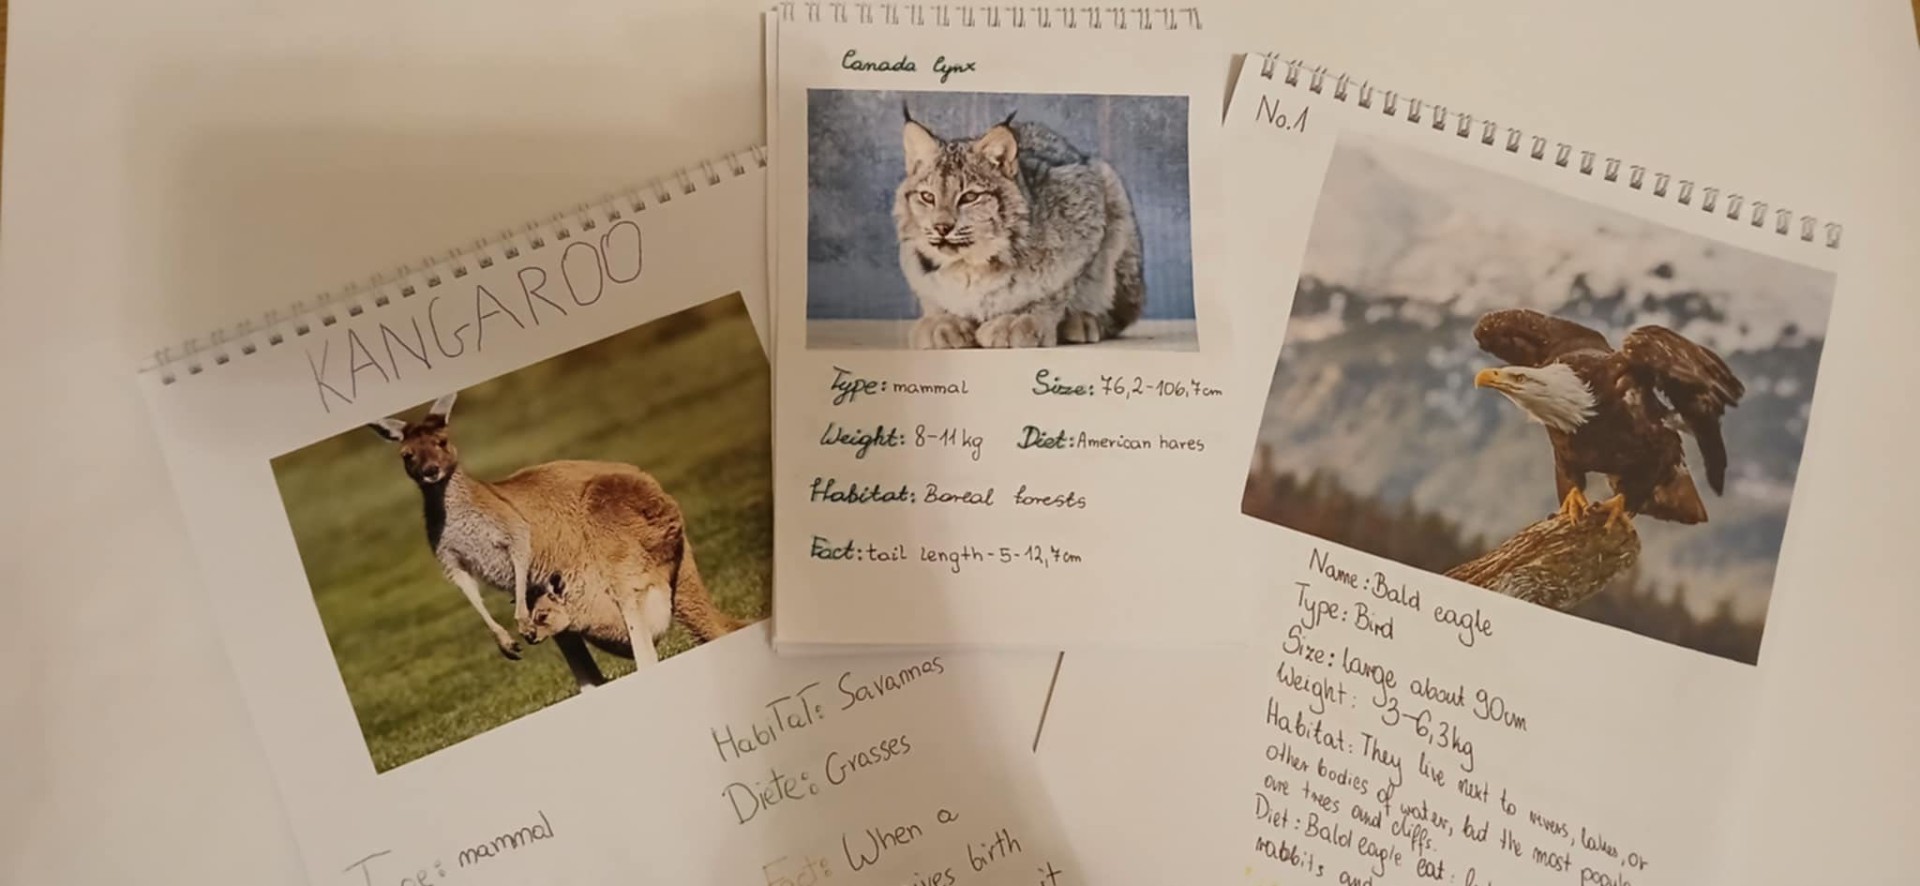 KANGAROO
Type: mammal
Habitat: Savannas
Diete: Grasses
Fact: When a
gives birth
it
Canada lynx
Type: mammal
Size: 76,2-106,7cm
Weight: 8-11 kg
Diet: American hares
Habitat: Boreal forests
Fact: tail length-5-12,7cm
No.1
Name: Bald eagle
Type: Bird
Size: large about 90cm
Weight: 3-6,3kg
Habitat: They live next to rivers, lakes, or
other bodies of water, but the most
are trees and cliffs.
Diet: Bald eagle eat:
rabbits and